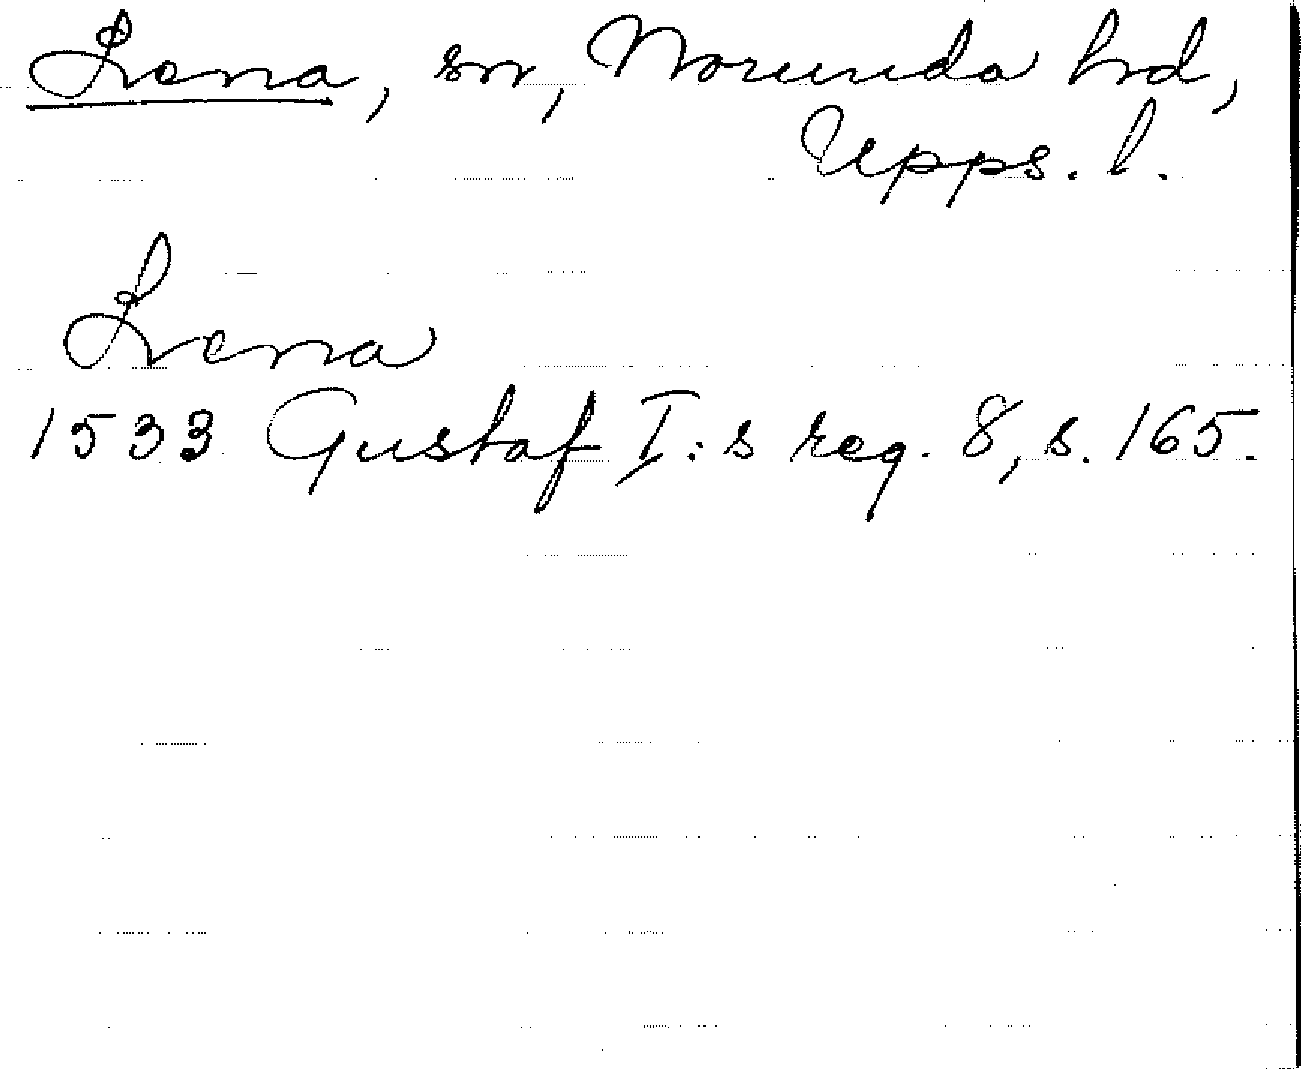 Lena, sn, Norunda hd,
Upps. l.
Lena
1533 Gustaf I:s reg. 8, s. 165.